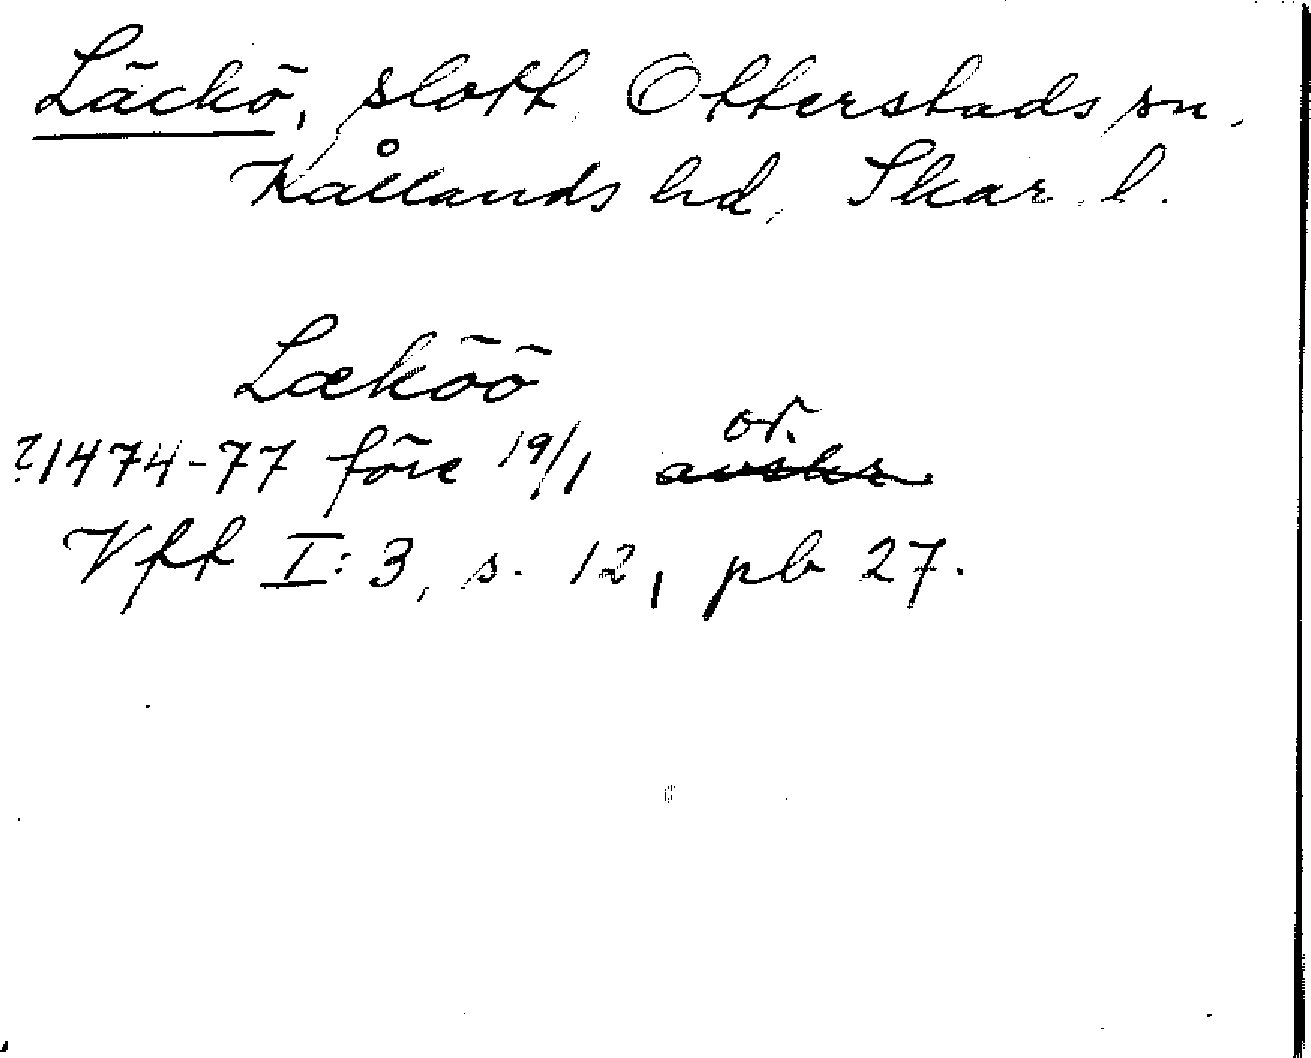 Läckö, slott, Otterstads sn.
Kållands hd, Skar. l.
Læköö
or.
?1474-77 före 19/1 avskr
Vft I:3, s. 12, pb 27.